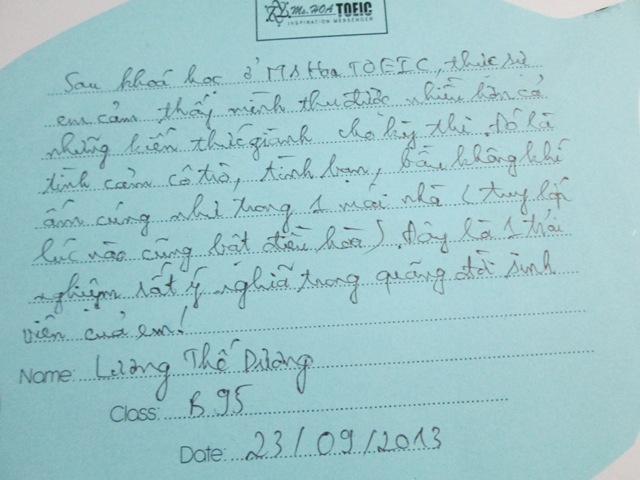 Ms. HOA TOEIC
INSPIRATION MESSENGER
Sau khoá học ở Ms Hoa TOEIC, thực sự
em cảm thấy mình thu được nhiều hơn cả
những kiến thức giành cho kỳ thi. Đó là
tình cảm cô trò, tình bạn, bầu không khí
ấm cúng như trong 1 mái nhà (tuy lớp
lúc nào cũng bật điều hoà). Đây là 1 trải
nghiệm rất ý nghĩa trong quãng đời sinh
viên của em!
Name: Lương Thế Dương
Class: B95
Date: 23/09/2013